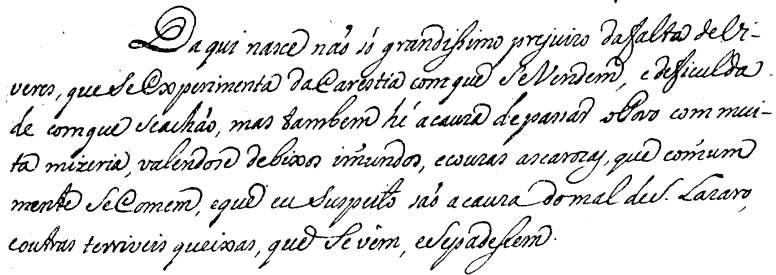 Daqui nasce não só grandissimo prejuizo da falta de Vi-
veres, que se Experimenta da Carestia com que se Vendem, e deficulda
de com que se achão, mas tambem hé a cauza de passar o Povo com mui-
ta mizeria, valendose de bixos imundos, e couzas ascarozas, que comum
mente se Comem, e que eu suspeito são a cauza do mal de S. Lazaro,
e outras terriveis queixas, que se vêm, e se padescem.